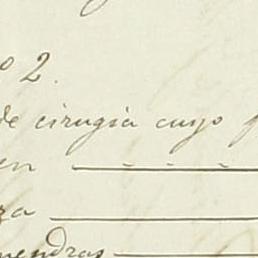 º 2.
de cirugia cuyo
en
za
mendras